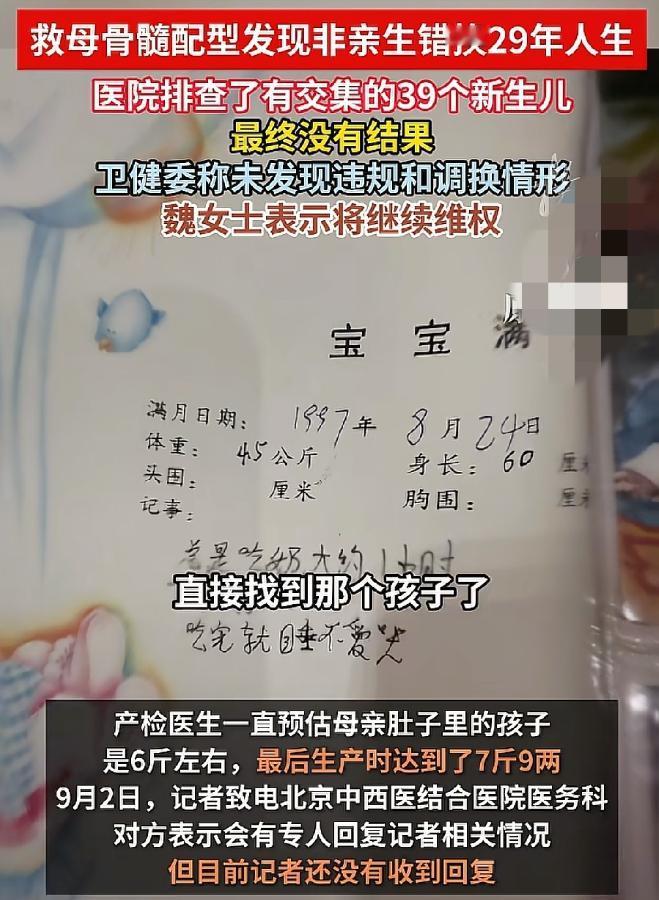 救母骨髓配型发现非亲生错扶29年人生
医院排查了有交集的39个新生儿
最终没有结果
卫健委称未发现违规和调换情形
魏女士表示将继续维权
宝宝满
满月日期: 1997年 8月24日
体重: 4.5公斤 身长: 60 厘米
头围: 厘米 胸围: 厘米
记事:
总是吃奶大约1小时
直接找到那个孩子了
吃完就睡不爱哭
产检医生一直预估母亲肚子里的孩子
是6斤左右，最后生产时达到了7斤9两
9月2日，记者致电北京中西医结合医院医务科
对方表示会有专人回复记者相关情况
但目前记者还没有收到回复